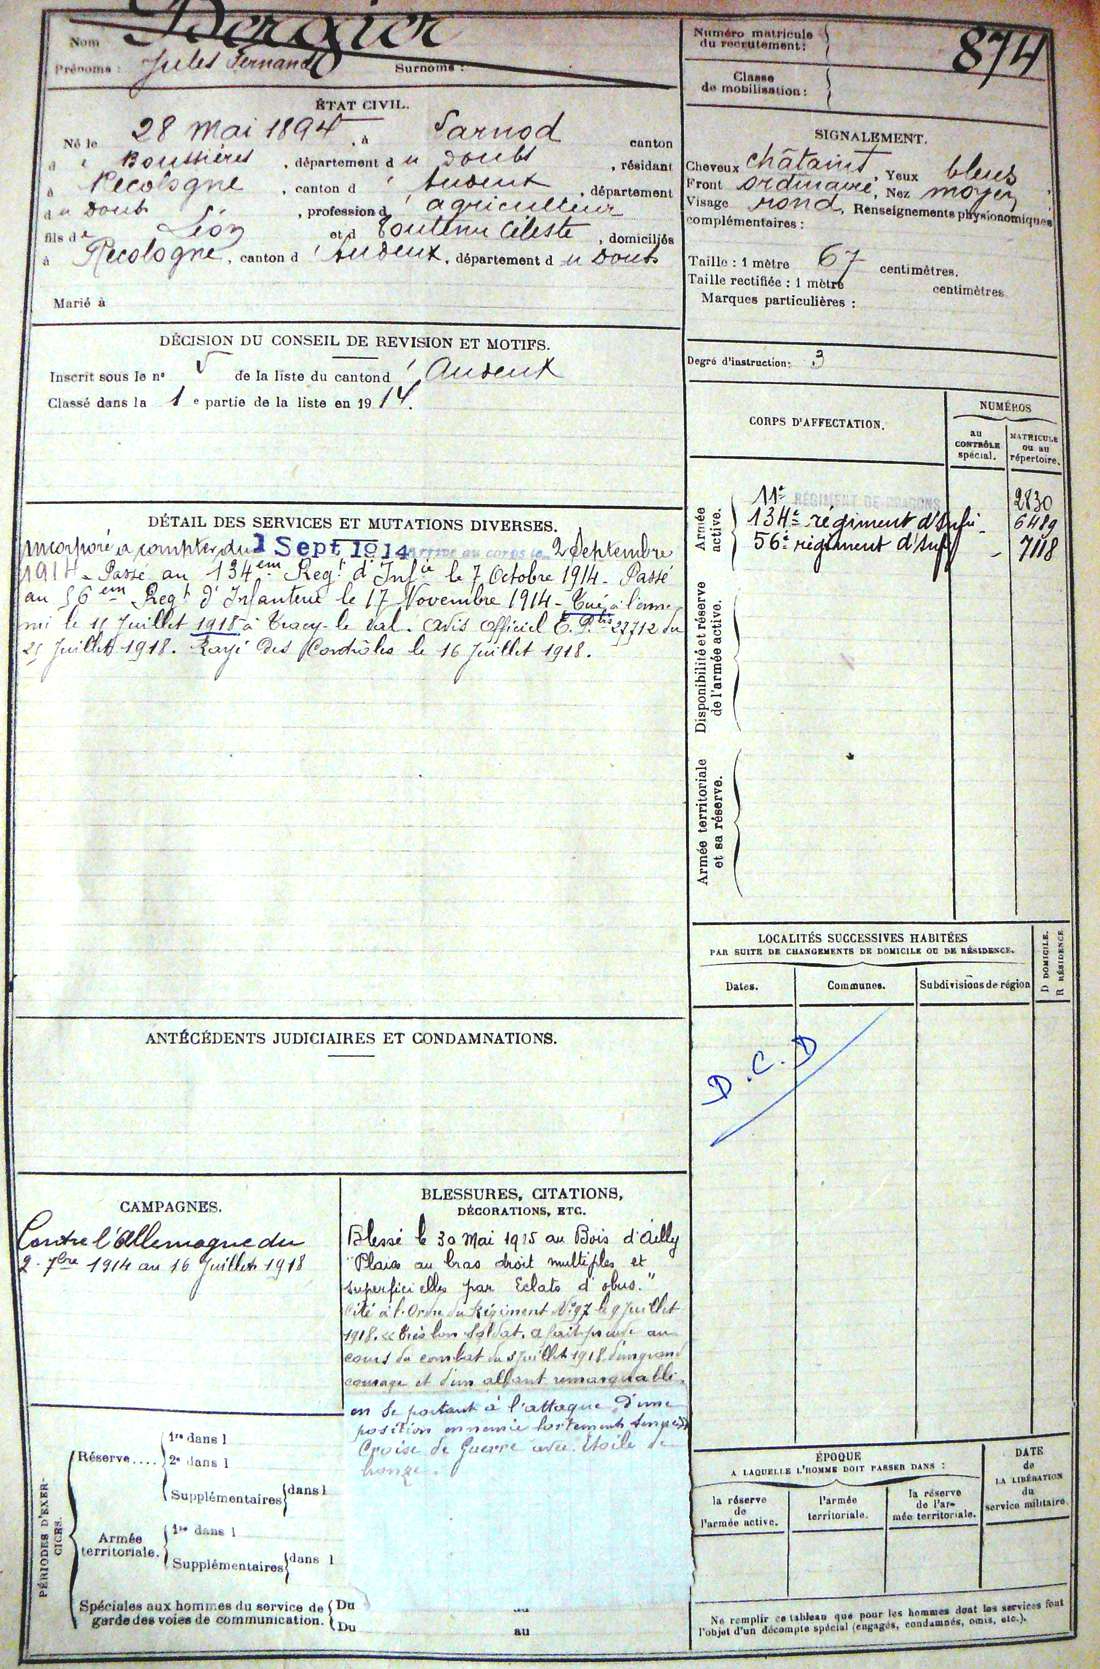 Nom Bergier
Prénoms : Jules Fernand Surnoms :
Numéro matricule du recrutement : 874
Classe de mobilisation :
ÉTAT CIVIL.
Né le 28 Mai 1894, à Larnod canton
d e Boussières, département du Doubs, résidant
à Recologne, canton d' Audeux, département
du Doubs, profession d' agriculteur
fils de Léon et d Boutenu Céleste, domiciliés
à Recologne, canton d' Audeux, département du Doubs
Marié à
SIGNALEMENT.
Cheveux châtains, Yeux bleus,
Front ordinaire, Nez moyen,
Visage rond, Renseignements physionomiques
complémentaires :
Taille : 1 mètre 67 centimètres.
Taille rectifiée : 1 mètre centimètres
Marques particulières :
Degré d'instruction : 3
DÉCISION DU CONSEIL DE REVISION ET MOTIFS.
Inscrit sous le n° 5 de la liste du canton d' Audeux
Classé dans la 1e partie de la liste en 1914.
DÉTAIL DES SERVICES ET MUTATIONS DIVERSES.
Incorporé à compter du 1 Sept 1914 Arrivé au corps le 2 Septembre
1914. Passé au 134em Regt d'Infie le 7 Octobre 1914. Passé
au 56em Regt d'Infanterie le 17 Novembre 1914 - Tué à l'enne
mi le 15 Juillet 1918 à Tracy-le-Val. Avis Officiel E.P. 27712 du
25 Juillet 1918. Rayé des Contrôles le 16 Juillet 1918.
CORPS D'AFFECTATION.
NUMÉROS
au CONTRÔLE spécial.
MATRICULE ou au répertoire.
Armée active.
11e RÉGIMENT DE DRAGONS 2830
134e régiment d'Infie - 6489
56e régiment d'Inf - 7118
Disponibilité et réserve de l'armée active.
Armée territoriale et sa réserve.
LOCALITÉS SUCCESSIVES HABITÉES
PAR SUITE DE CHANGEMENTS DE DOMICILE OU DE RÉSIDENCE.
D DOMICILE.
R RÉSIDENCE
Dates. Communes. Subdivisions de région
D.C.D
ANTÉCÉDENTS JUDICIAIRES ET CONDAMNATIONS.
CAMPAGNES.
Contre l'Allemagne du
2 7bre 1914 au 16 Juillet 1918
BLESSURES, CITATIONS,
DÉCORATIONS, ETC.
Blessé le 30 Mai 1915 au Bois d'Ailly
"Plaies au bras droit multiples et
superficielles par Eclats d'obus."
Cité à l'Ordre du Régiment N° 97 le 9 Juillet
1918. « très bon Soldat. a fait preuve au
cours du combat du 3 Juillet 1918 d'un grand
courage et d'un allant remarquable
en se portant à l'attaque d'une
position ennemie fortement tenue »
Croix de Guerre avec Étoile de
bronze.
PÉRIODES D'EXERCICES.
Réserve....
1re dans l
2e dans l
Supplémentaires dans l
Armée territoriale.
1re dans l
Supplémentaires dans l
Spéciales aux hommes du service de garde des voies de communication.
Du au
Du au
ÉPOQUE
A LAQUELLE L'HOMME DOIT PASSER DANS :
la réserve de l'armée active.
l'armée territoriale.
la réserve de l'armée territoriale.
DATE de LA LIBÉRATION du service militaire.
Ne remplir ce tableau que pour les hommes dont les services font
l'objet d'un décompte spécial (engagés, condamnés, omis, etc.).